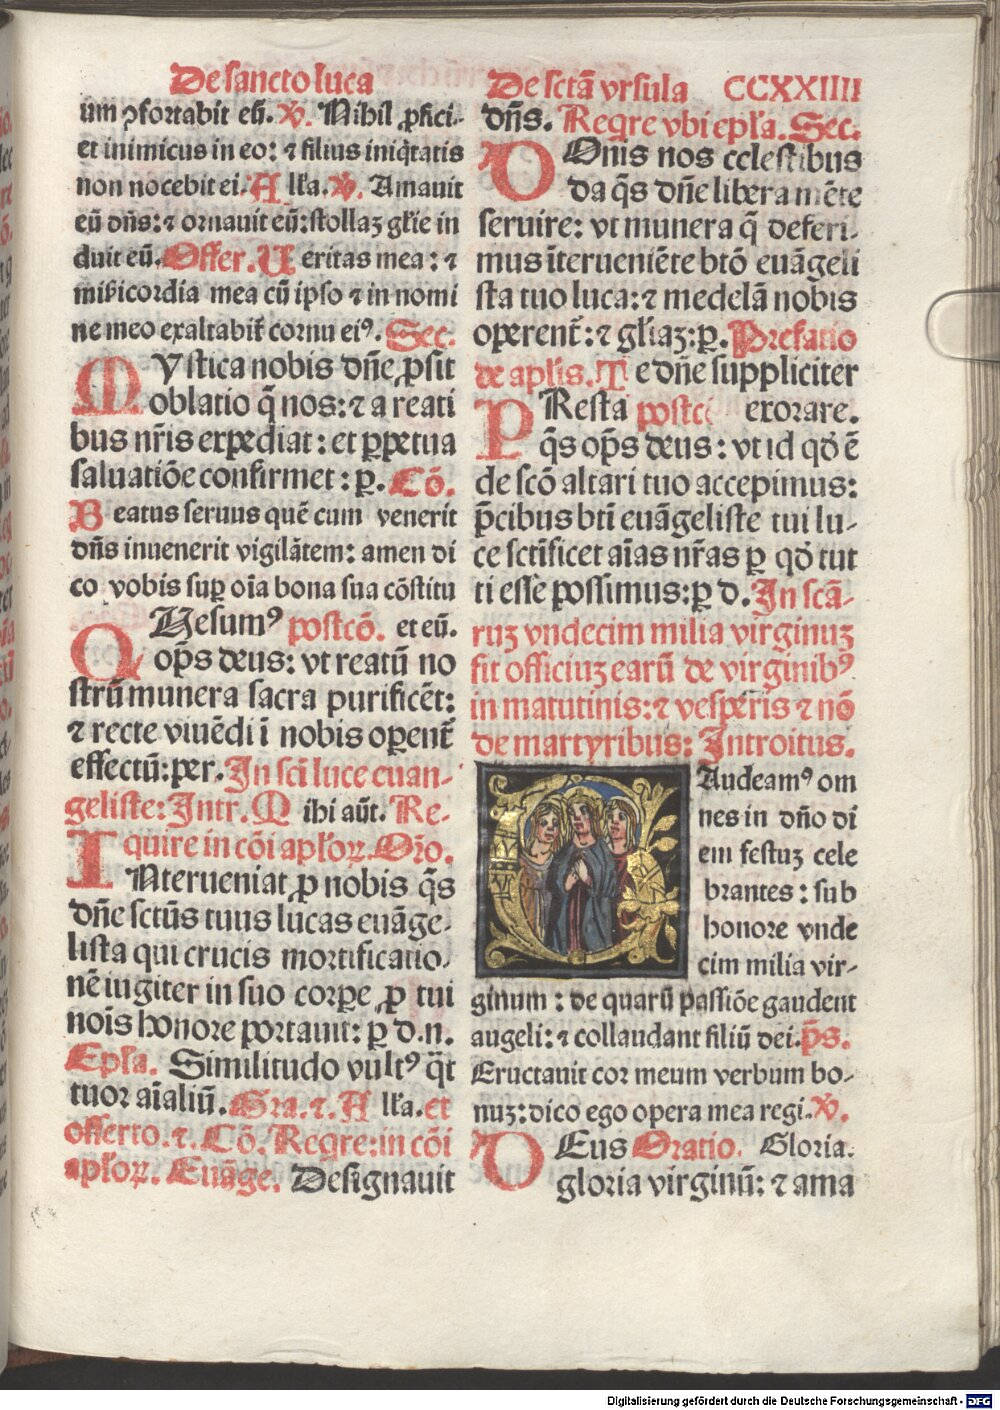 De sancto luca
um ꝯfortabit eū. ℣. Nihil ꝓfici-
et inimicus in eo: ⁊ filius iniq̄tatis
non nocebit ei. Alla. ℣. Amauit
eū dn̄s: ⁊ ornauit eū: stollaʒ gl̄ie in
duit eū. Offer. Ueritas mea: ⁊
miẜicordia mea cū ipso ⁊ in nomi
ne meo exaltabit̄ cornu eiꝰ. Sec.
MYstica nobis dn̄e ꝓsit
oblatio q̄ nos: ⁊ a reati
bus nr̄is expediat: et ꝑpetua
saluatiōe confirmet: ꝑ. Cō.
Beatus seruus quē cum venerit
dn̄s inuenerit vigilātem: amen di
co vobis suꝑ oīa bona sua cōstitu
QUesumꝰ postcō. et eū.
oīps deus: vt reatū no
strū munera sacra purificēt:
⁊ recte viuēdi ī nobis oꝑent̄
effectū: per. In sci luce euan-
geliste: Intr. Mihi aūt. Re-
quire in cōi apl̄oꝝ. Orō.
INterueniat ꝓ nobis q̄s
dn̄e sctūs tuus lucas euāge-
lista qui crucis mortificatio-
nē iugiter in suo corꝑe ꝓ tui
noīs honore portauit: ꝑ d.n.
Epl̄a. Similitudo vultꝰ q̄t
tuor aīaliū. Gra. ⁊. Alla. et
offerto. ⁊. Cō. Reqre: in cōi
apl̄oꝝ. Euāge. Designauit
De sctā vrsula CCXXIIII
dn̄s. Reqre vbi epl̄a. Sec.
DOnis nos celestibus
da q̄s dn̄e libera mēte
seruire: vt munera q̄ deferi-
mus īterueniēte btō euāgeli
sta tuo luca: ⁊ medelā nobis
operent̄: ⁊ gl̄iaʒ: ꝑ. Prefatio
de apl̄is. Te dn̄e suppliciter
PResta postcō exorare.
q̄s op̄s deus: vt id qđ ē
de scō altari tuo accepimus:
p̄cibus btī euāgeliste tui lu-
ce sctīficet aīas nr̄as ꝑ qđ tut
ti esse possimus: ꝑ d. In scā-
ruʒ vndecim milia virginuʒ
fit officiuʒ earū de virginibꝰ
in matutinis: ⁊ vesperis ⁊ nō
de martyribus: Introitus.
Gaudeamꝰ om
nes in dn̄o di
em festuʒ cele
brantes: sub
honore vnde
cim milia vir-
ginum: de quarū passiōe gaudent
angeli: ⁊ collaudant filiū dei. p̄s.
Eructauit cor meum verbum bo-
nuʒ: dico ego opera mea regi. ℣.
DEus Oratio. Gloria.
gloria virginū: ⁊ ama
Digitalisierung gefördert durch die Deutsche Forschungsgemeinschaft - DFG